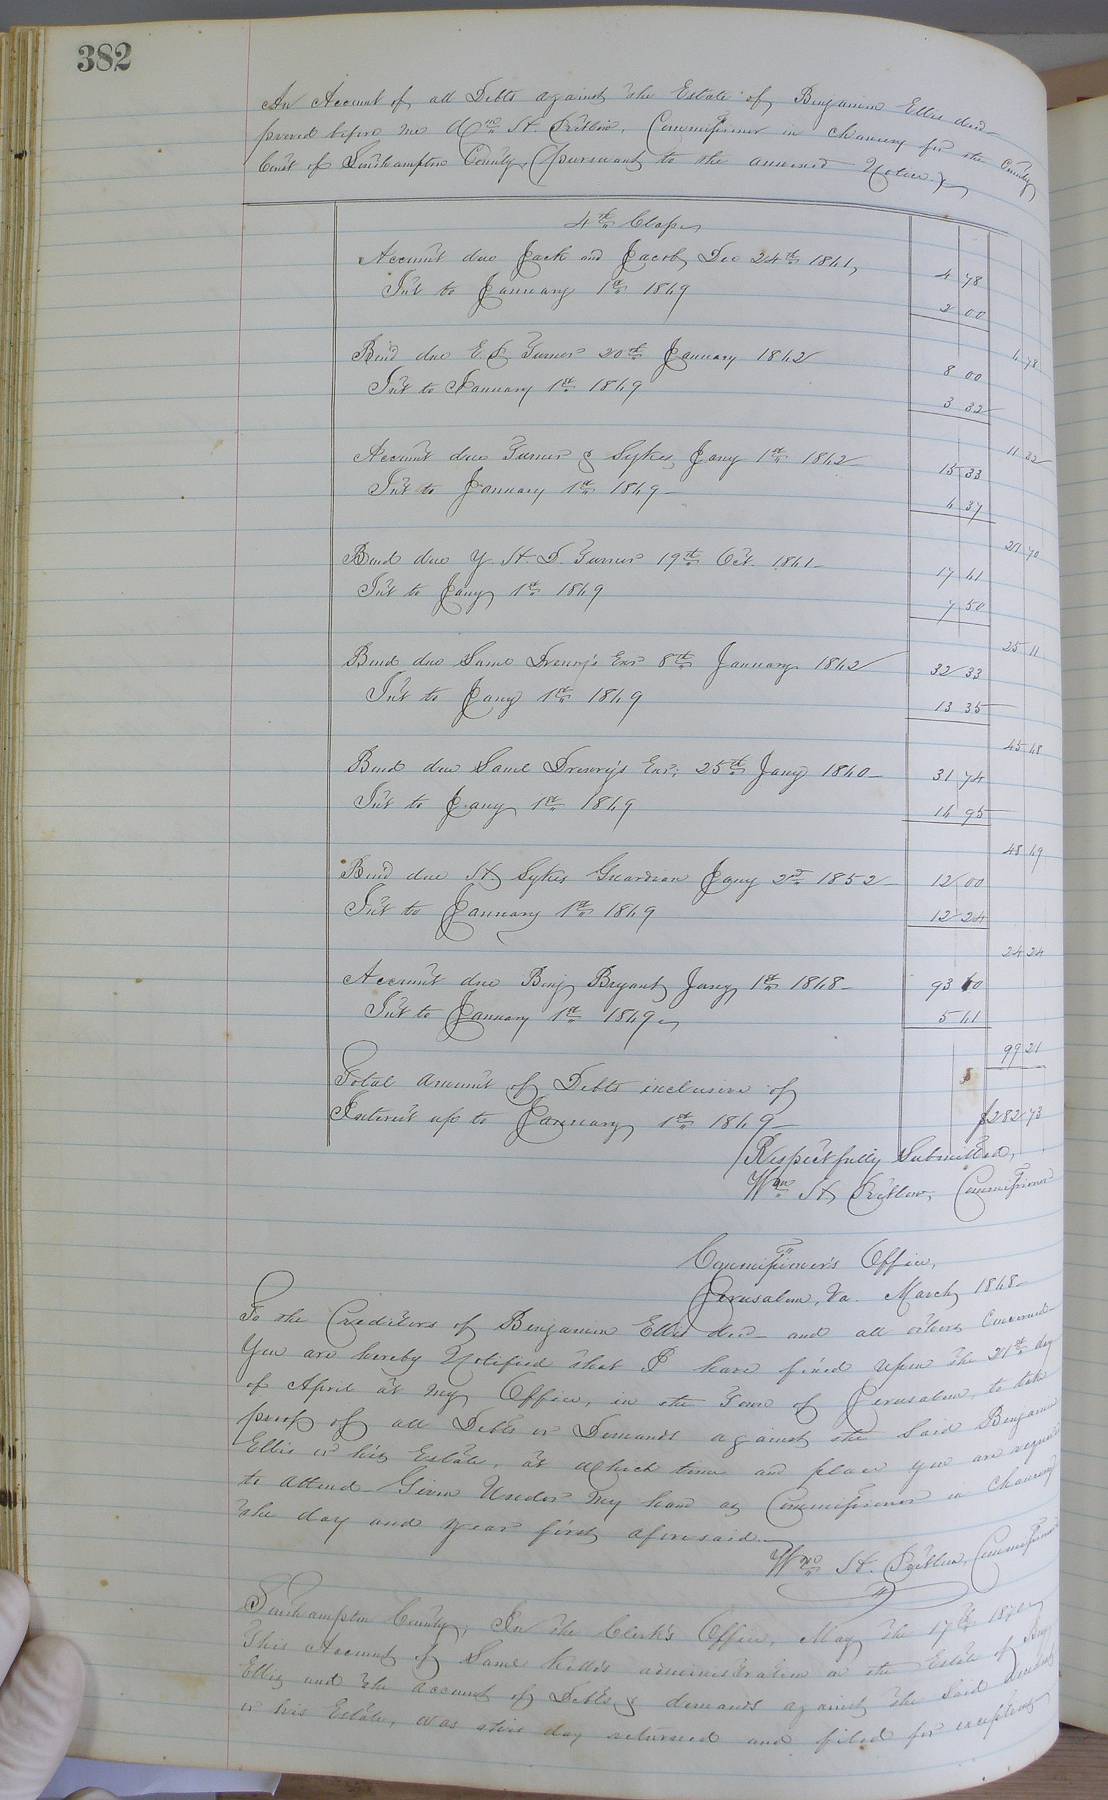 382
An Account of all Debts against the Estate of Benjamin Ellis decd
proved before me Wm H. Commissioner in chancery for the County
Court of Southampton County (pursuant to the annexed Notice)
4th Class
Account due Jack and Jacob, Dec 24th 1841, 4 78
Int to January 1st 1849 2 00
6 78
Bond due E. D. Turner 20th January 1842 8 00
Int to January 1st 1849 3 32
11 32
Account due Turner & Sykes Jany 1st 1842 15 33
Int to January 1st 1849 6 37
21 70
Bond due Y. H. D. Turner 19th Oct. 1841 17 61
Int to Jany 1st 1849 7 50
25 11
Bond due Saml Drewry's Exr 8th January 1842 32 33
Int to Jany 1st 1849 13 35
45 68
Bond due Saml Drewry's Exr. 25th Jany 1840 31 74
Int to Jany 1st 1849 16 95
48 69
Bond due H. Sykes Guardian Jany 2nd 1852 12 00
Int to January 1st 1849 12 24
24 24
Account due Benj Bryant, Jany 1st 1848 93 60
Int to January 1st 1849 5 61
99 21
Total amount of Debts inclusive of
Interest up to January 1st 1849 $282 73
Respectfully Submitted,
Wm H. Commissioner
Commissioner's Office,
Jerusalem, Va. March 1848
To the Creditors of Benjamin Ellis decd and all others Concerned
You are hereby Notified that I have fixed upon the 21st day
of April at my Office, in the Town of Jerusalem, to take
proof of all Debts or Demands against the Said Benjamin
Ellis or his Estate, at which time and place you are required
to attend. Given Under my hand as Commissioner in Chancery
the day and year first aforesaid.
Wm H. Commissioner
Southampton County, In the Clerk's Office, May the 17th 1870
This Account of Saml administration on the Estate of Benj
Ellis and the account of Debts & demands against the Said decedent
or his Estate, was this day returned and filed for exceptions